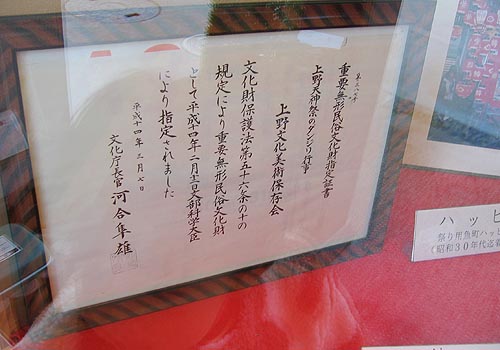 第三八七号
重要無形民俗文化財指定証書
上野天神祭のダンジリ行事
上野文化美術保存会
文化財保護法第五十六条の十の
規定により重要無形民俗文化財
として平成十四年二月十二日文部科学大臣
により指定されました
平成十四年二月七日
文化庁長官 河合隼雄
ハッピ
祭り用魚町ハッピ
(昭和30年代迄